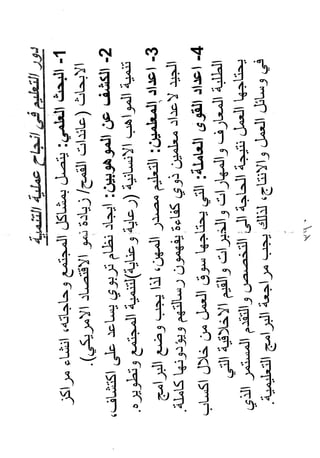 دور التعليم في إنجاح عملية التنمية
1- البحث العلمي: يتصل بمشاكل المجتمع وحاجاته، انشاء مراكز
الابحاث (عائدات القمح/ زيادة نمو الاقتصاد الامريكي).
2- الكشف عن الموهوبين: ايجاد نظام تربوي يساعد على اكتشاف،
تنمية المواهب الانسانية (رعاية وعناية)لتنمية المجتمع وتطويره.
3- اعداد المعلمين: التعليم مصدر المهن، لذا يجب وضع البرامج
الجيد لاعداد معلمين ذوي كفاءة يفهمون رسالتهم ويؤدونها كاملة.
4- اعداد القوى العاملة: التي يحتاجها سوق العمل من خلال اكساب
الطلبة المعارف والمهارات والخبرات والقيم الاخلاقية التي
يحتاجها العمل نتيجة الحاجة الى التخصص والتقدم المستمر الذي
في وسائل العمل والانتاج، لذلك يجب مراجعة البرامج التعليمية.